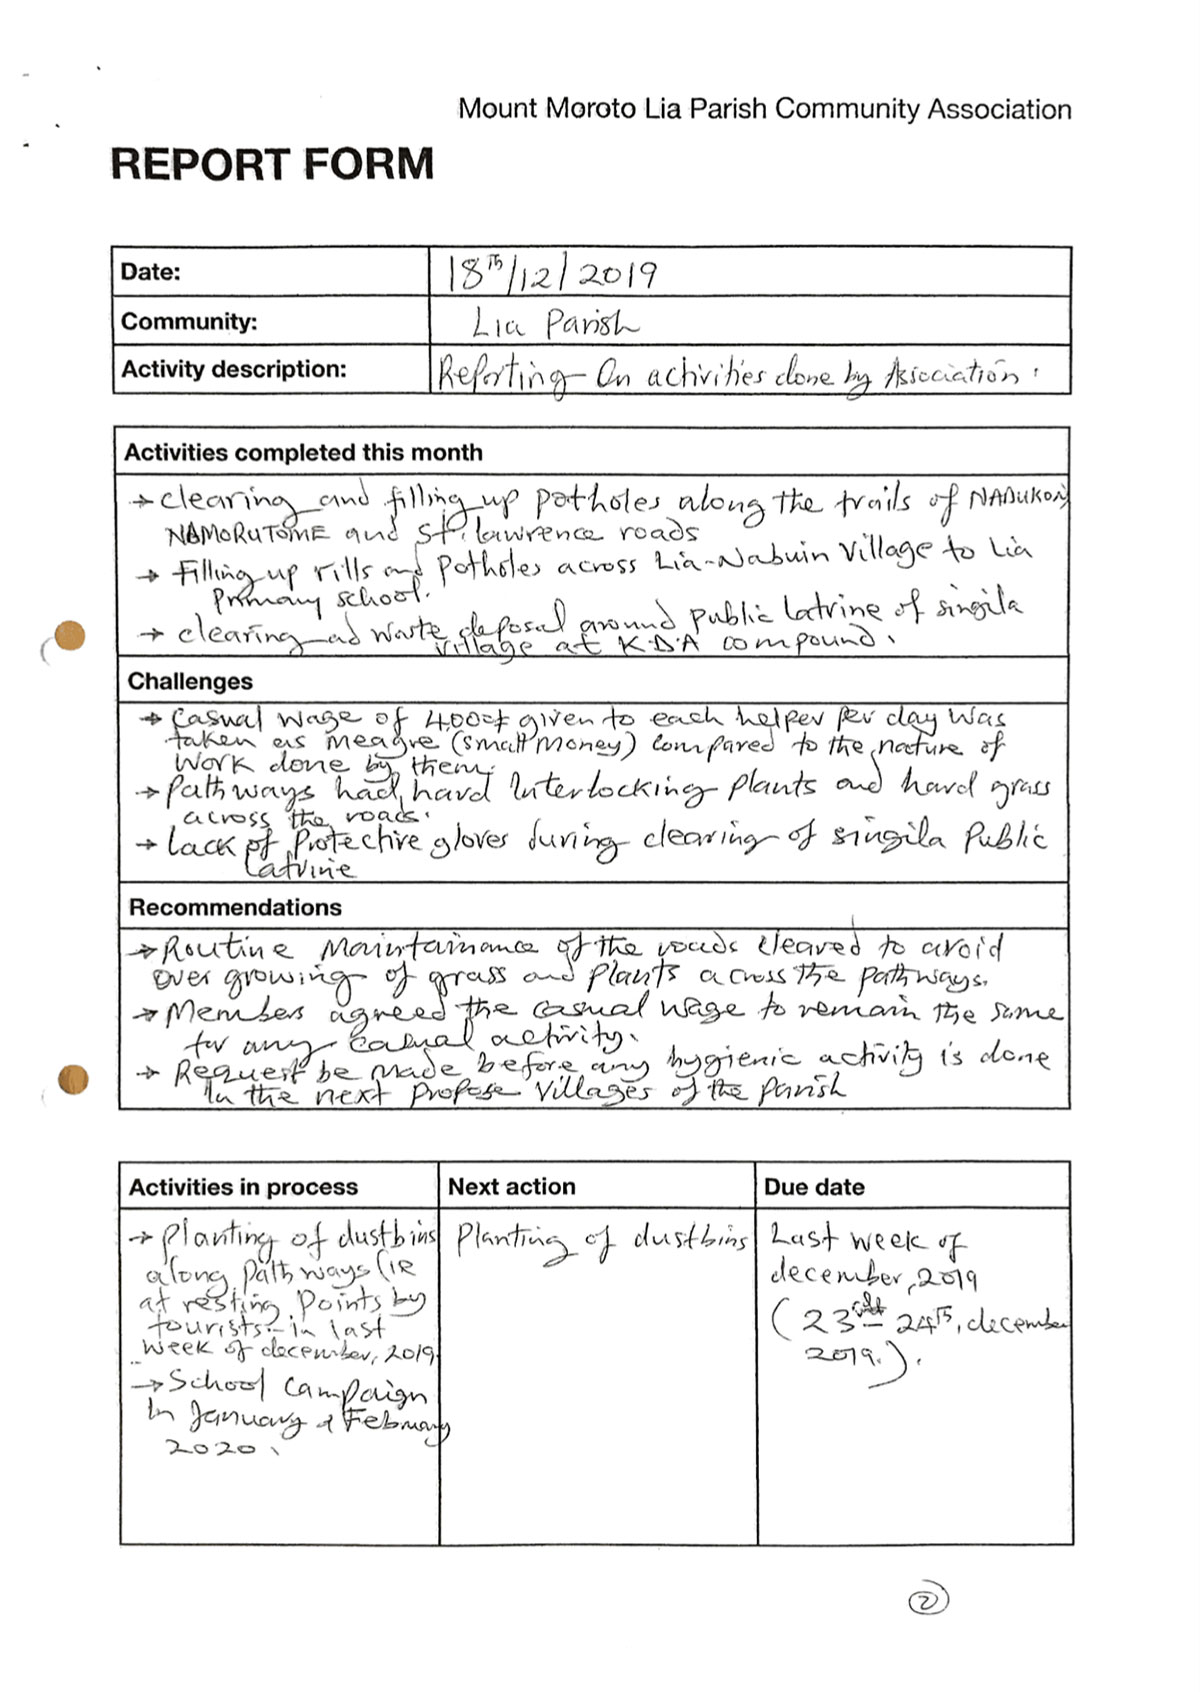 Mount Moroto Lia Parish Community Association
REPORT FORM
Date: 18th/12/2019
Community: Lia Parish
Activity description: Reporting On activities done by Association.
Activities completed this month
→ clearing and filling up potholes along the trails of NADUKON,
NAMORUTOME and St. lawrence roads
→ Filling up rills and potholes across Lia-Nabuin Village to Lia
Primary school.
→ clearing ad waste deposal around public latrine of singila
village at K.D.A compound.
Challenges
→ Casual wage of given to each helper per day was
taken as meagre (small money) compared to the nature of
work done by them.
→ Pathways had hard Interlocking plants and hard grass
across the roads.
→ Lack of Protective gloves during clearing of singila Public
Latrine
Recommendations
→ Routine Maintainance of the roads cleared to avoid
over growing of grass and plants across the pathways.
→ Members agreed the casual wage to remain the same
for any casual activity.
→ Request be made before any hygienic activity is done
In the next propose villages of the parish
Activities in process
→ Planting of dustbins
along pathways (IE
at resting points by
tourists - in last
week of december, 2019
→ School campaign
In January & February
2020.
Next action
Planting of dustbins
Due date
Last week of
december, 2019
(23rd - 24th, december
2019.).
2